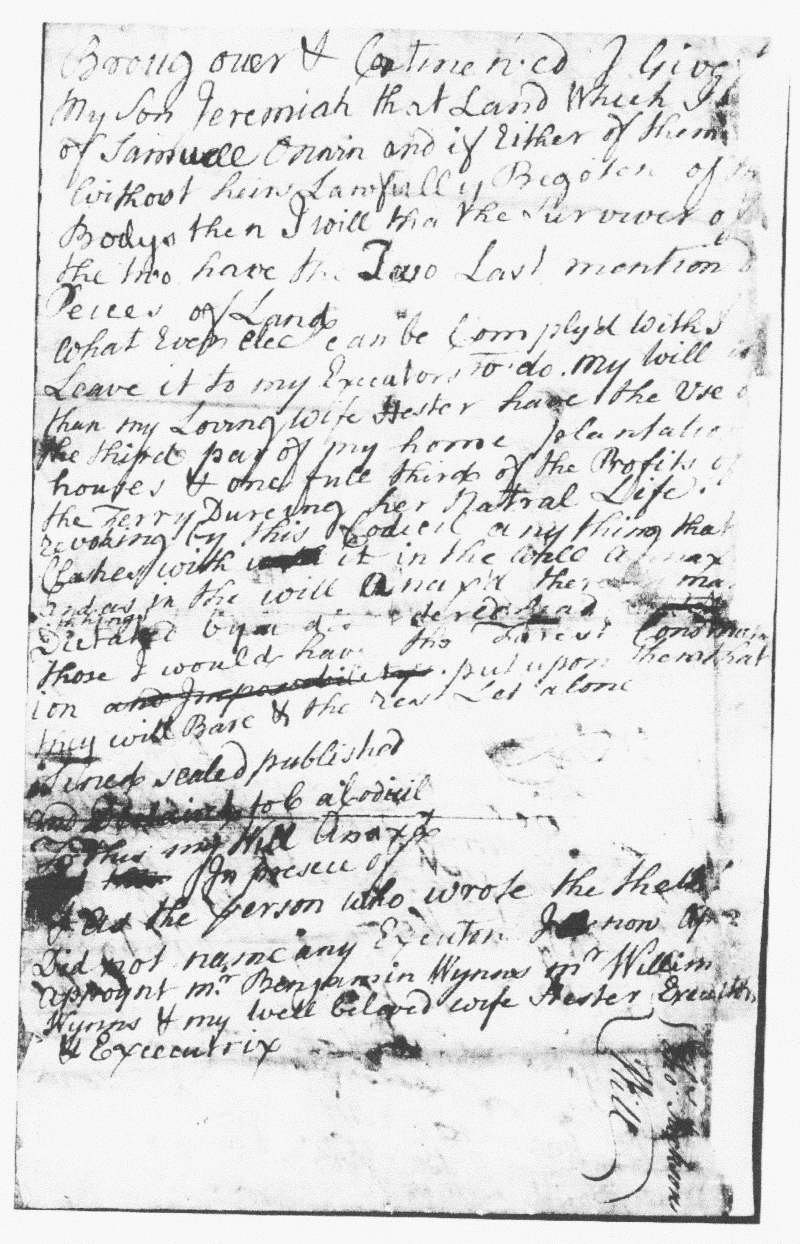 Broug over & Continen:cd I Give
My Son Jeremiah that Land Which I
of Samuell Onain and if Either of them
Without heirs Lawfully Begoten of
Bodys then I will tha the Surviver of
the two have the Two Last mention'd
Peices of Land
What Ever elec can be Comply'd with I
Leave it to my Executors to do. My will is
than my Loving wife Hester have the Use of
the third par of my home plantation
houses & one full third of the Profits of
the Ferry Dureing her Natral Life.
revoking by this Codicil any thing that
Clashes with it in the will Anax
and as in the will Anax'd there ma
things
Dictated by a dis ordered head
those I would have the Farest Constru
ion and Imposibilitys put upon them that
they will Bare & the rest Let alone
Sined sealed published
and to b a Codicil
To this my Will Anax'd
In presece of
& as the person who wrote the the will
Did not name any Executor I now
appoynt mr. Benjamin Wynns mr. Willim
Wynns & my well beloved wife Hester Executors
& Execcutrix
Jackson
Will